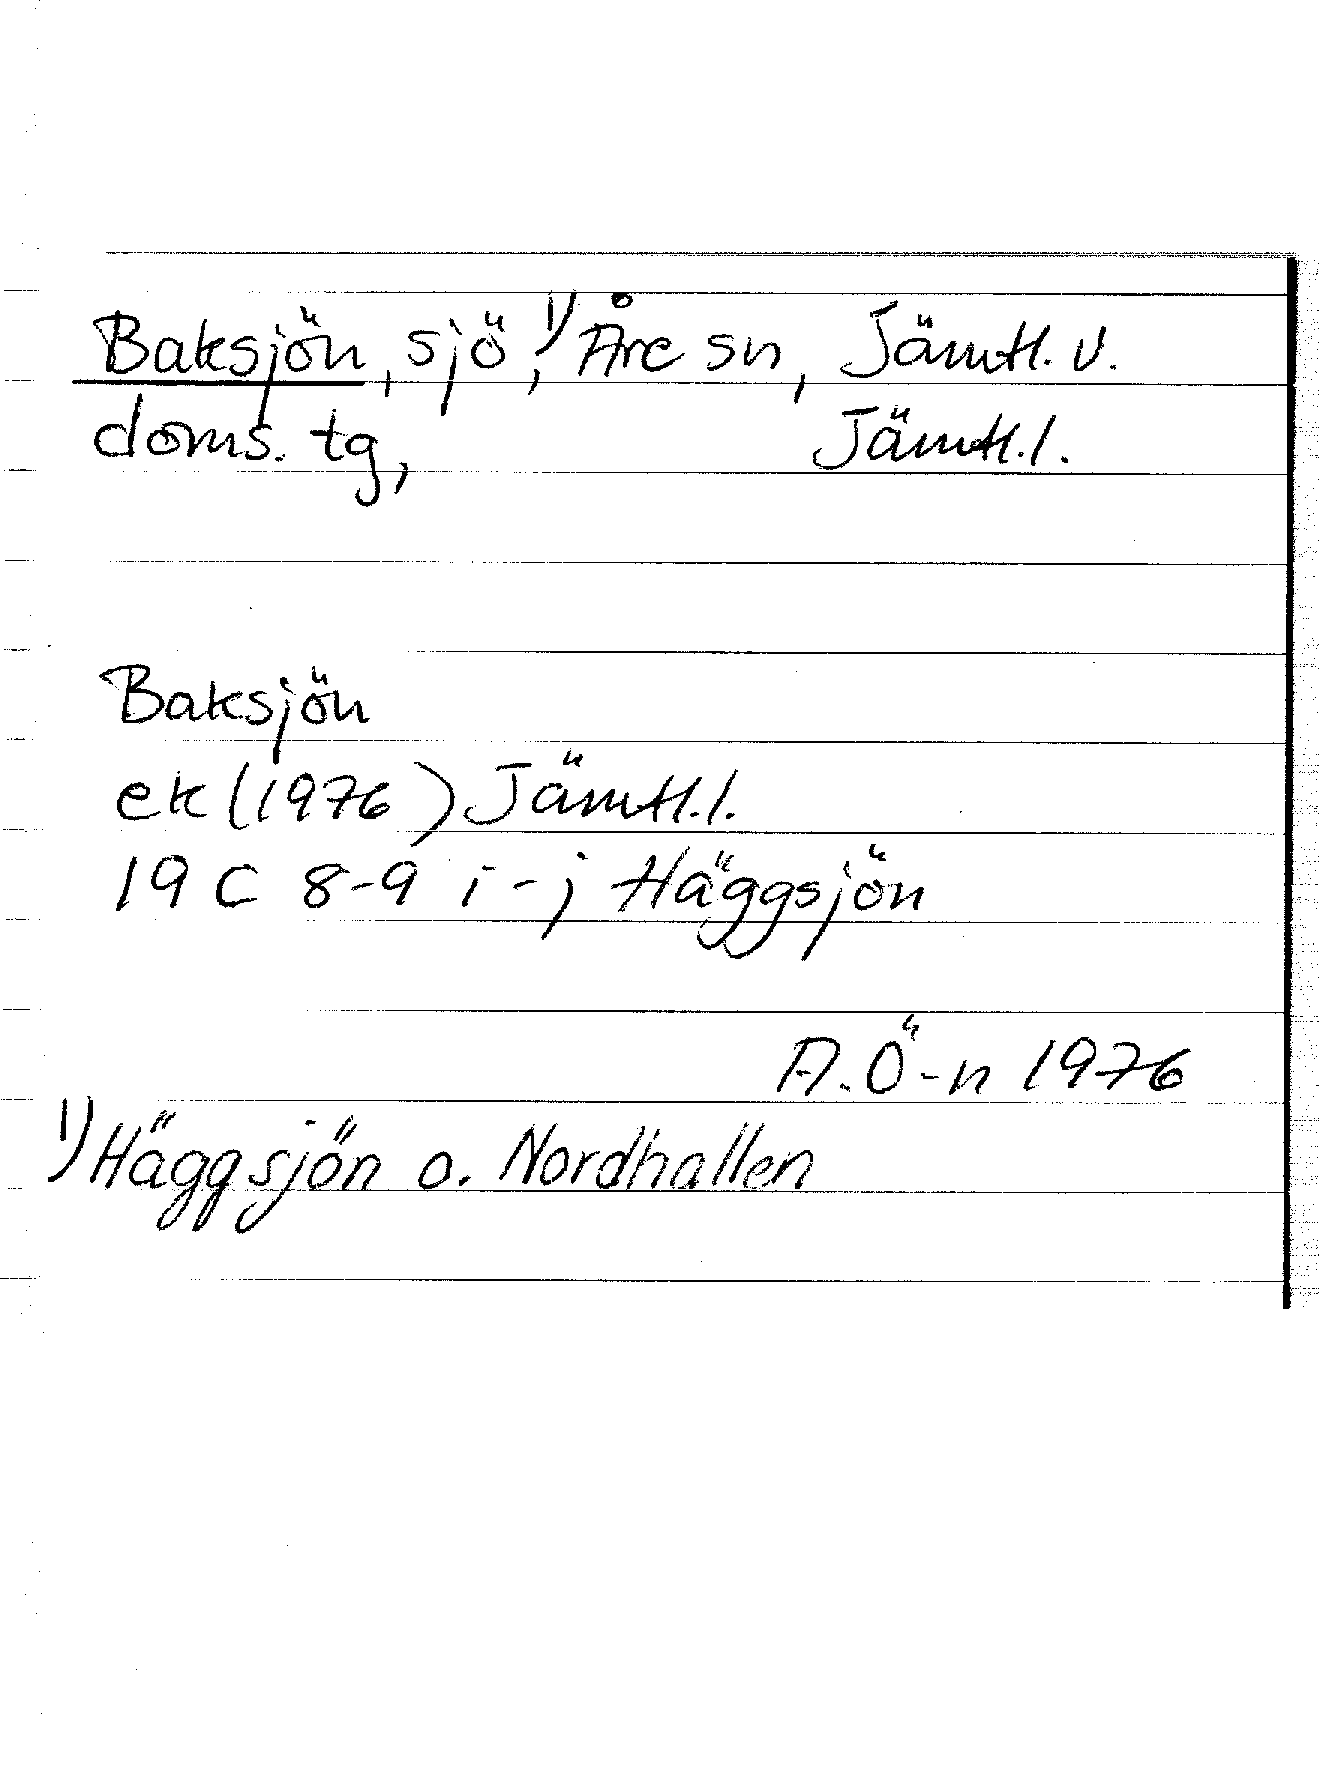 Baksjön, sjö,¹⁾ Åre sn, Jämtl. v.
doms. tg, Jämtl. l.
Baksjön
ek (1976) Jämtl. l.
19 C 8-9 i-j Häggsjön
A. Ö-n 1976
¹⁾ Häggsjön o. Nordhallen